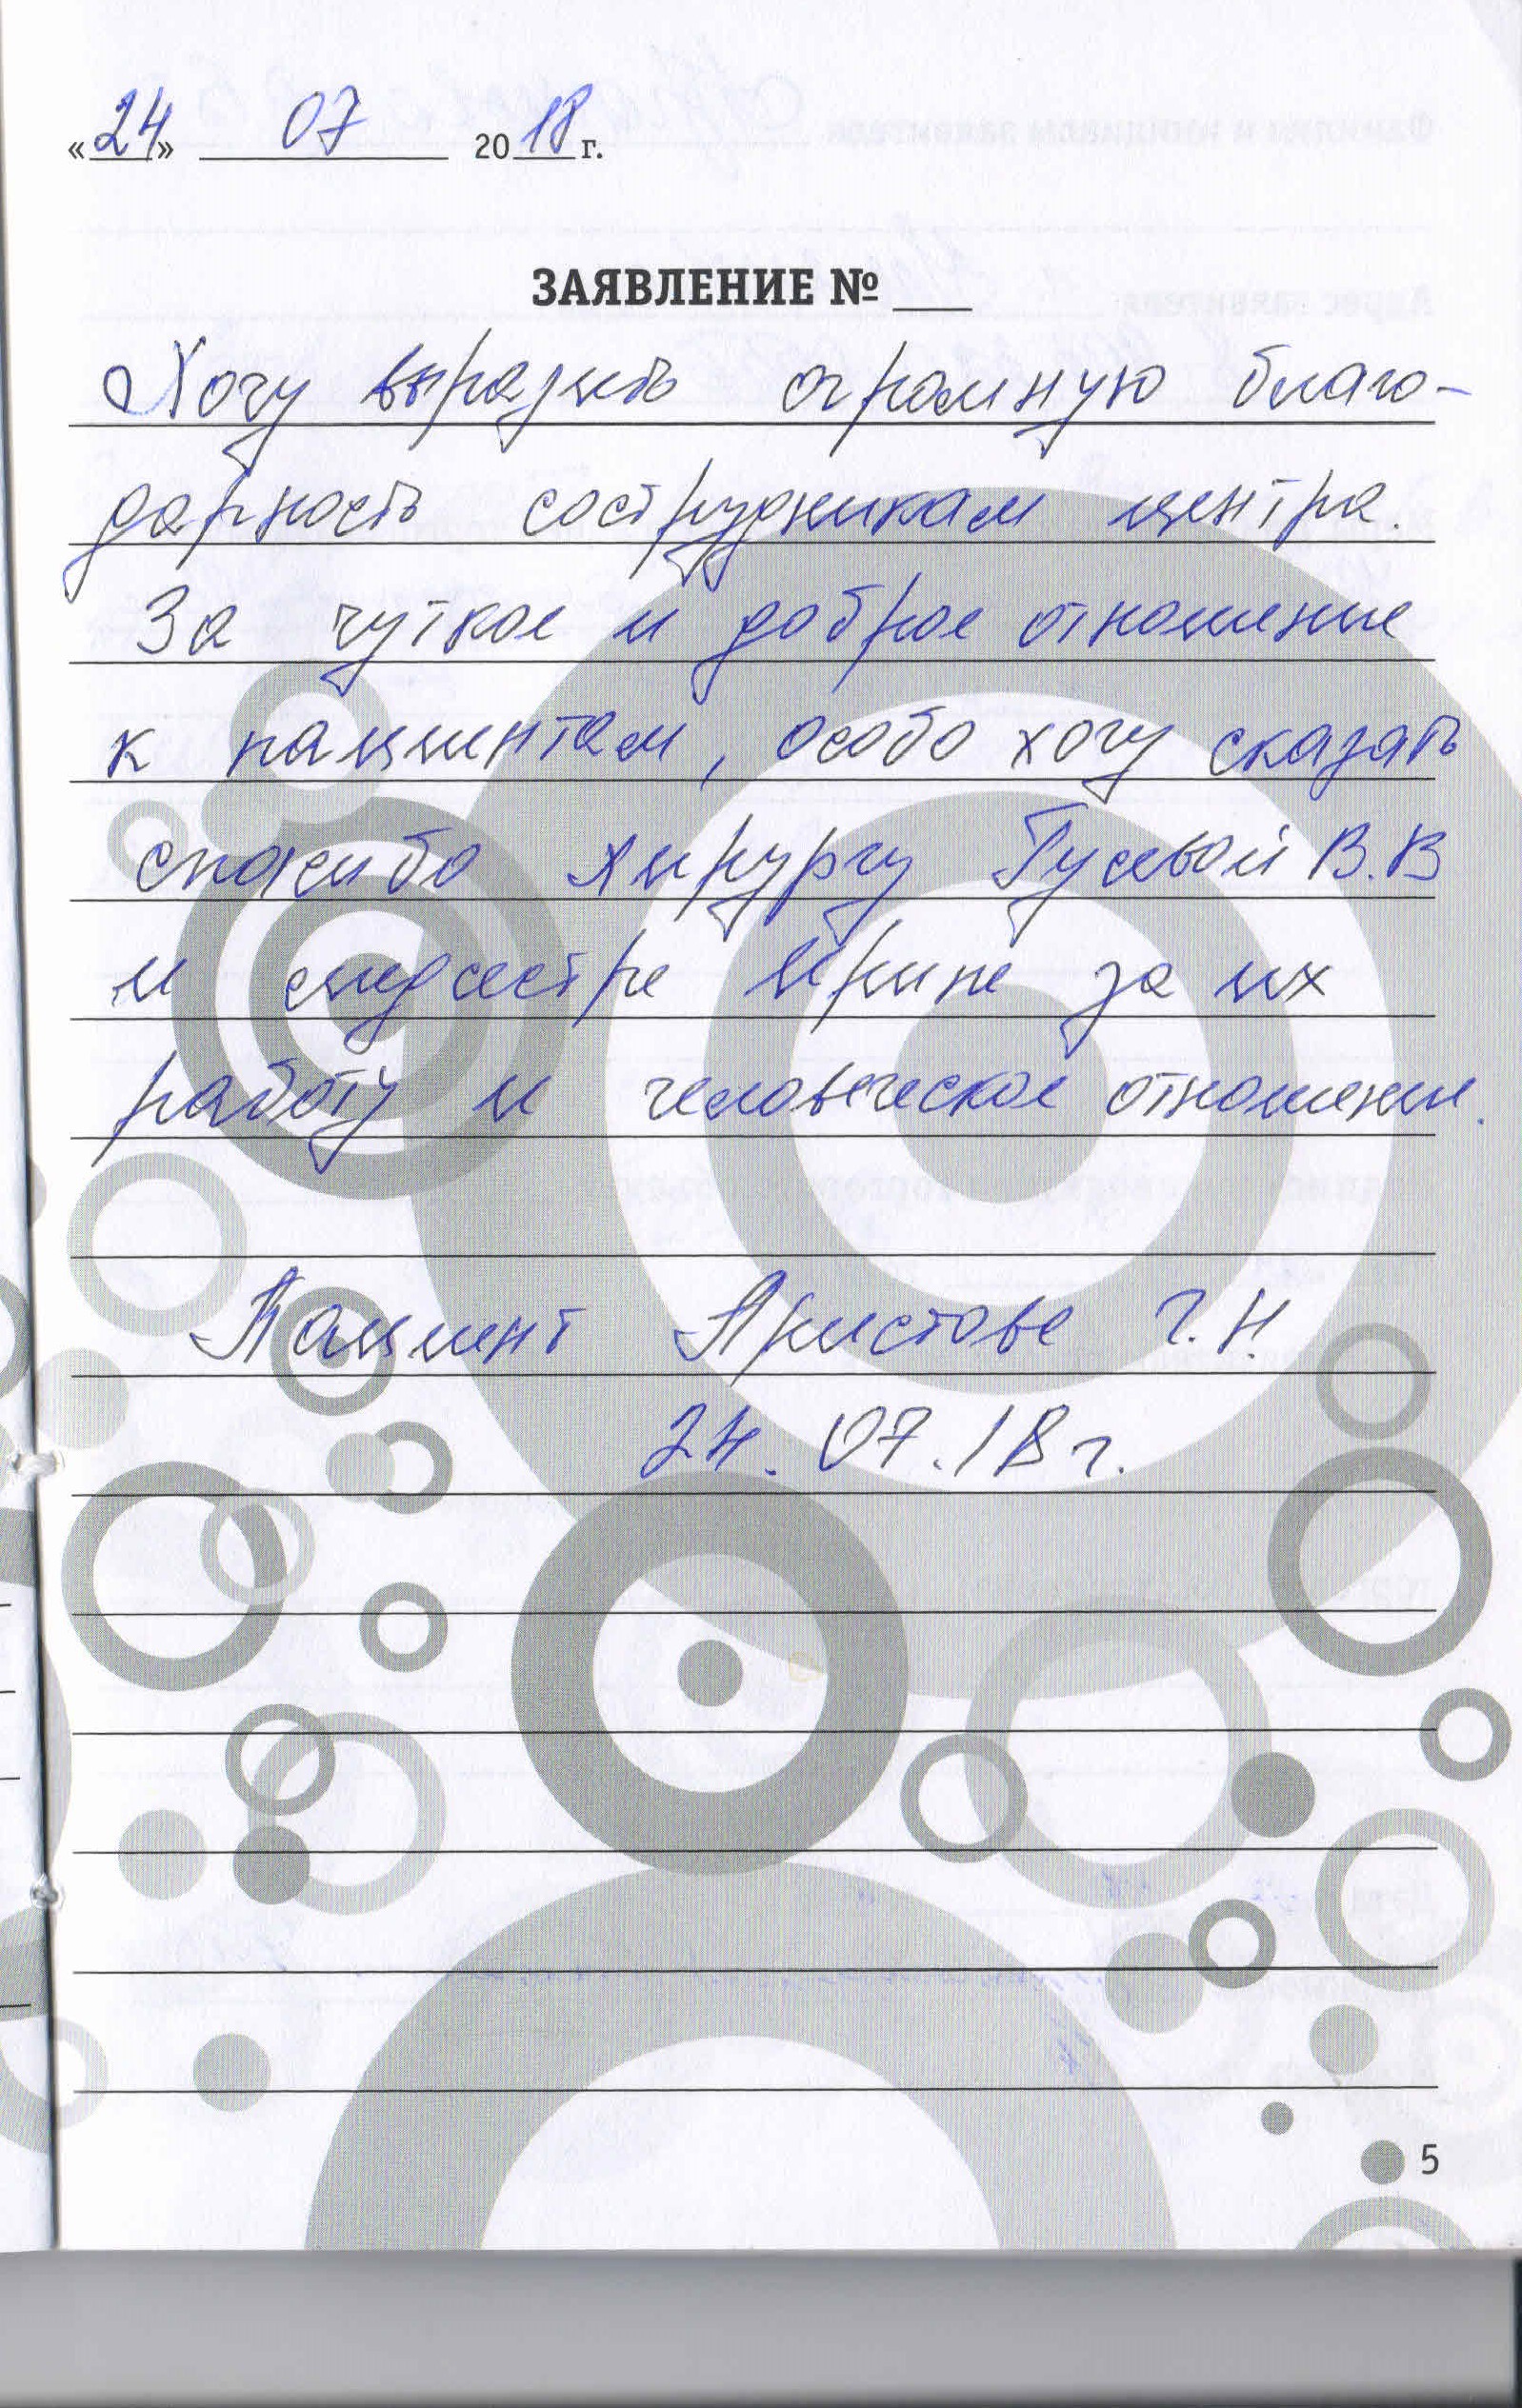 «24» 07 2018 г.
ЗАЯВЛЕНИЕ № ___
Хочу выразить огромную благо-
дарность сострудникам центра.
За чуткое и доброе отношение
к пациентам, особо хочу сказать
спасибо хирургу Гусевой В.В
и медсестре Ирине за их
работу и человеческое отношение.
Пациент Аристова Г.Н.
24.07.18 г.
5